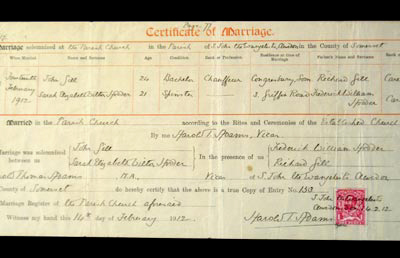 Page 77
Certificate of Marriage.
Marriage solemnized at the Parish Church in the Parish of S. John the Evangelist Clevedon in the County of Somerset
When Married Name and Surname Age Condition Rank or Profession Residence at time of Marriage Father's Name and Surname
Fourteenth February 1912. John Gill 24 Bachelor Chauffeur Congresbury, Som Richard Gill
Sarah Elizabeth Hodder 21 Spinster Frederick William Hodder
Married in the Parish Church according to the Rites and Ceremonies of the Established Church
By me Harold T. Adams, Vicar
Marriage was solemnized between us John Gill
Sarah Elizabeth Hodder
In the presence of us Frederick William Hodder
Richard Gill
Harold Thomas Adams M.A. Vicar of S. John the Evangelist, Clevedon
County of Somerset do hereby certify that the above is a true copy of Entry No.
Marriage Register of the Parish Church aforesaid
Witness my hand this 14th day of February 1912.
Harold T. Adams
S. John the Evangelist
Clevedon 14.2.12